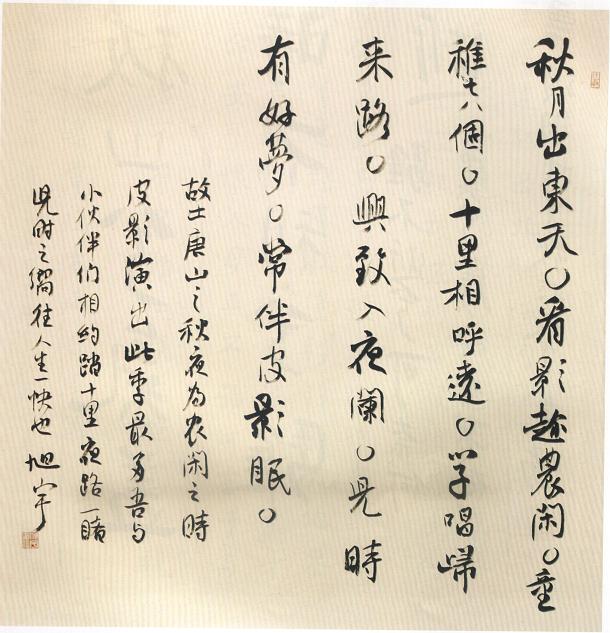 秋月出東天○看影趁農闲○童
稚七八個○十里相呼遠○学唱歸
来路○興致入夜闌○児時
有好夢○常伴皮影眠○
故土唐山之秋夜為农闲之時
皮影演出此季最多吾与
小伙伴们相约踏十里夜路一睹
児时之嚮往人生一快也 旭宇